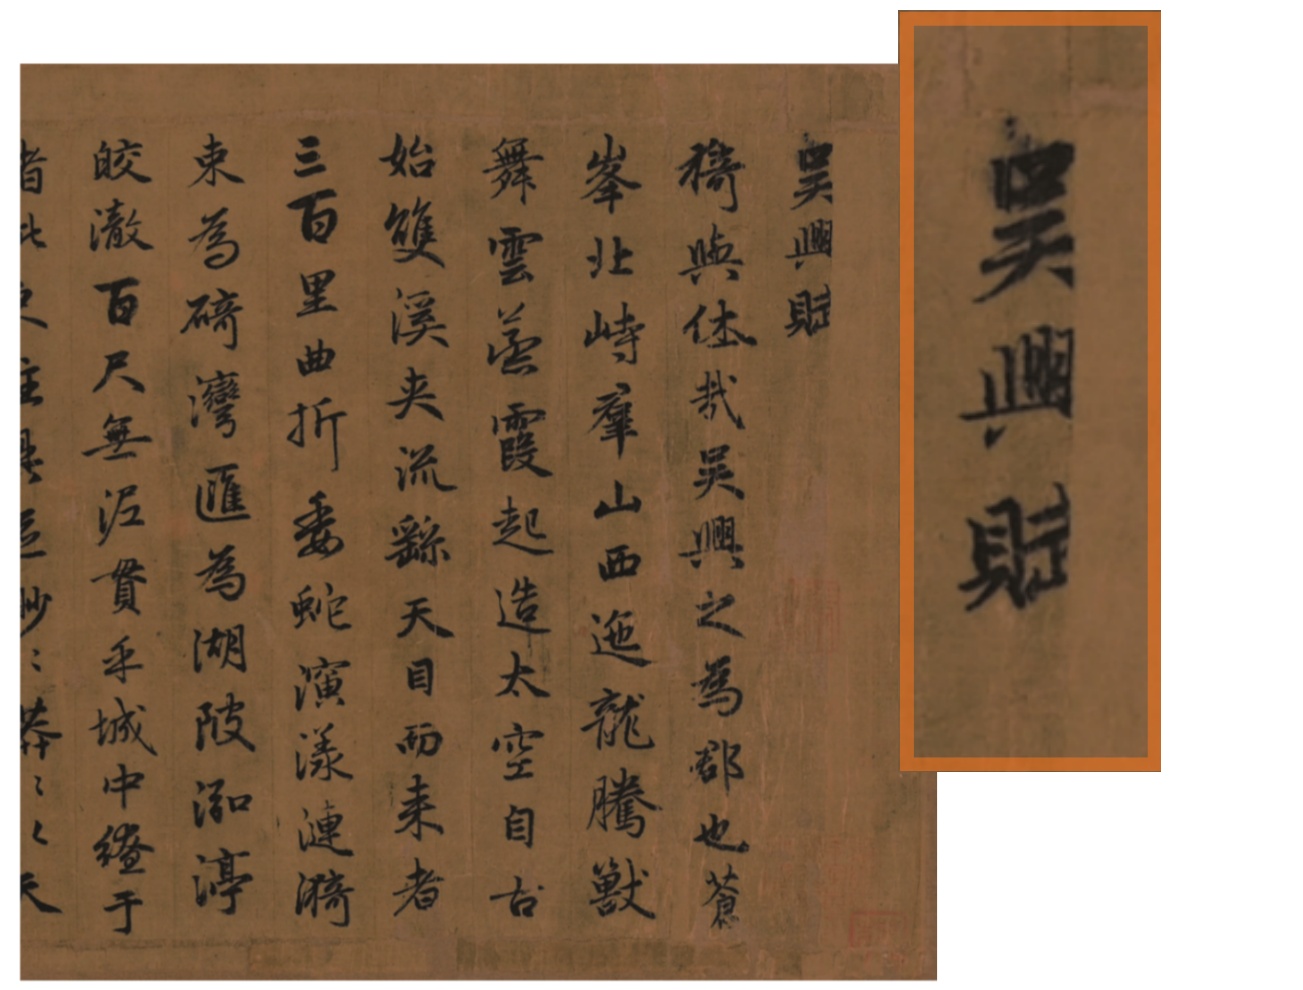 吳興賦
吳興賦
猗與休哉吳興之為郡也蒼
峯北峙羣山西迤龍騰獸
舞雲蒸霞起造太空自古
始雙溪夾流繇天目而來者
三百里曲折委蛇演漾漣漪
束為碕灣匯為湖陂泓渟
皎澈百尺無泥貫乎城中繚于